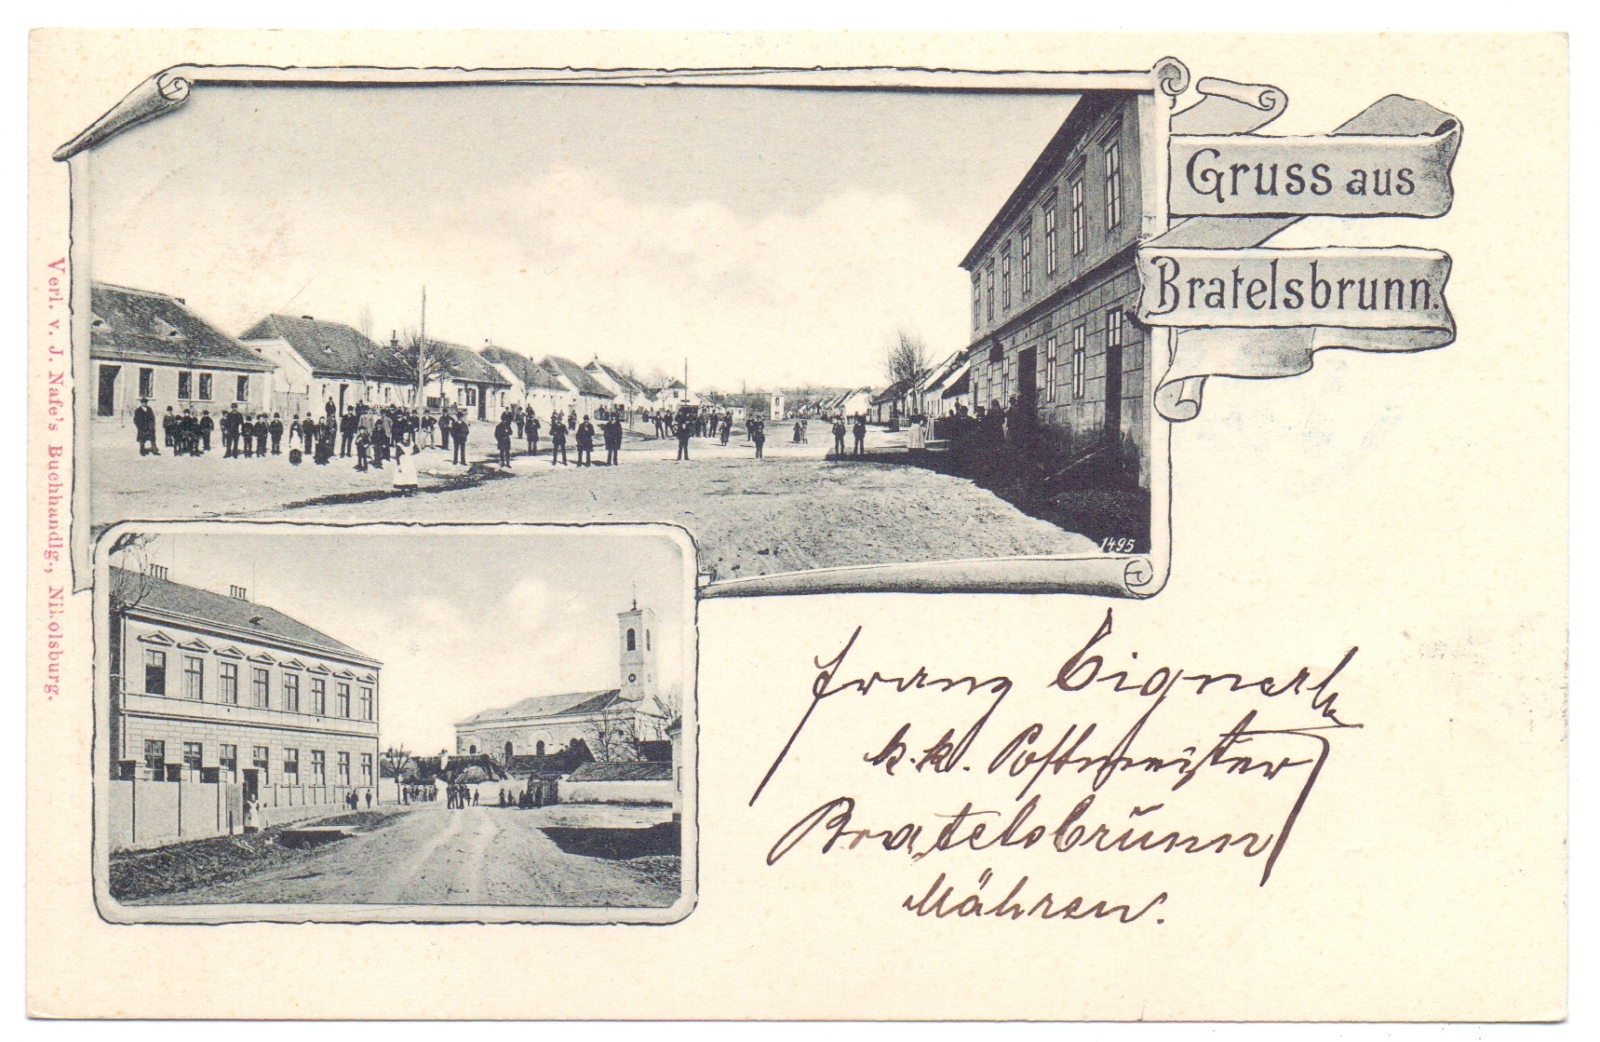 Gruss aus
Bratelsbrunn.
Verl. v. J. Nafe's Buchhandlg., Nikolsburg.
1495
Franz
k.k. Postmeister
Bratelsbrunn
Mähren.